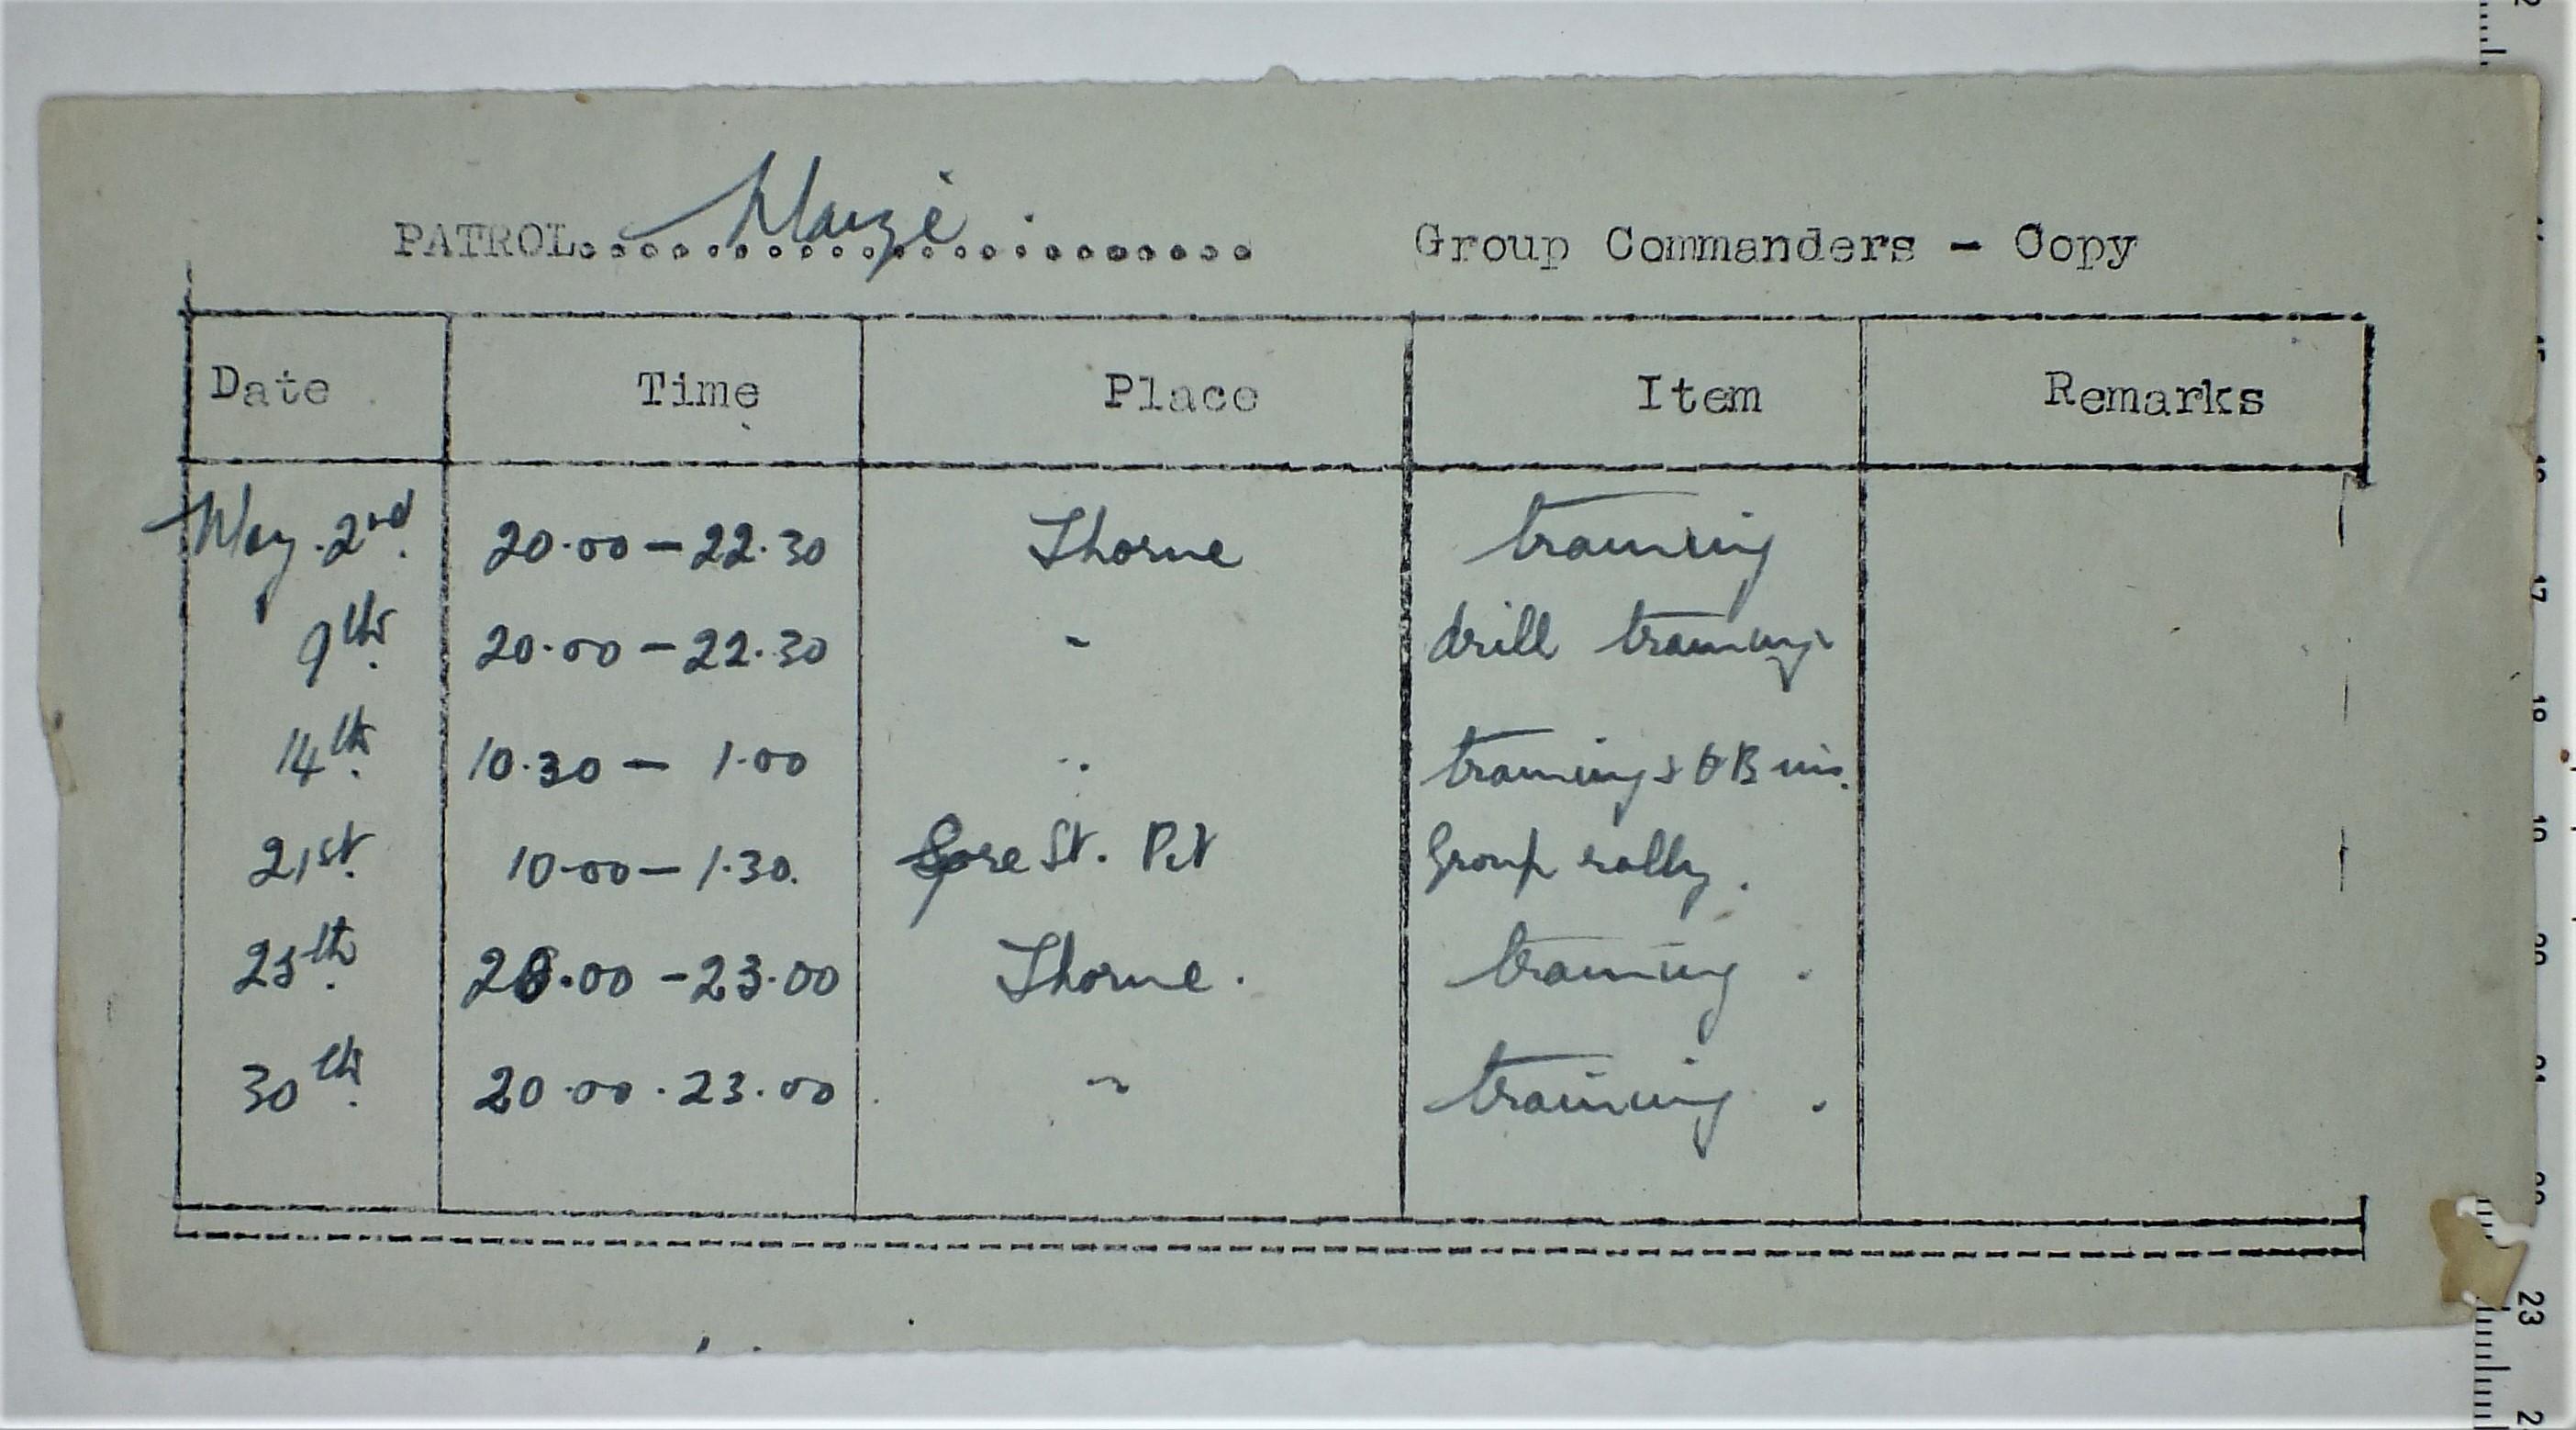 PATROL.......Maize............... Group Commanders - Copy
Date Time Place Item Remarks
May 2nd. 20.00 - 22.30 Thorne training
9th. 20.00 - 22.30 " drill training
14th. 10.30 - 1.00 " training & OB
21st. 10.00 - 1.30. Gore St. Pit Group rally.
25th. 20.00 - 23.00 Thorne. training.
30th. 20.00 . 23.00 " training.
17
18
19
20
21
22
23